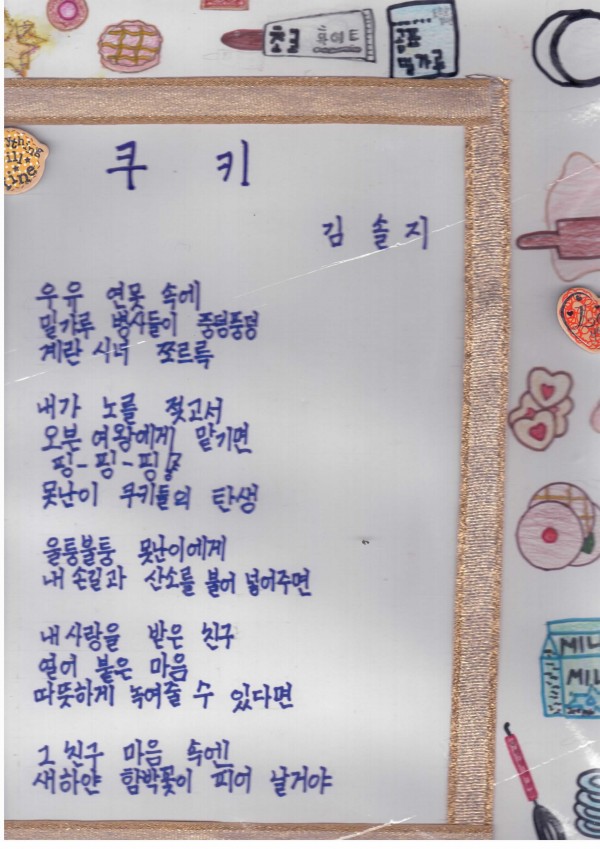 초코 화이트
곰표
밀가루
쿠 키
김 솔 지
우유 연못 속에
밀가루 병사들이 풍덩풍덩
계란 시녀 쪼르륵
내가 노를 젖고서
오븐 여왕에게 맡기면
핑-핑-핑
못난이 쿠키들의 탄생
울퉁불퉁 못난이에게
내 손길과 산소를 불어 넣어주면
내 사랑을 받은 친구
얼어 붙은 마음
따뜻하게 녹여줄 수 있다면
그 친구 마음 속엔
새하얀 함박꽃이 피어 날거야
MIL
MIL